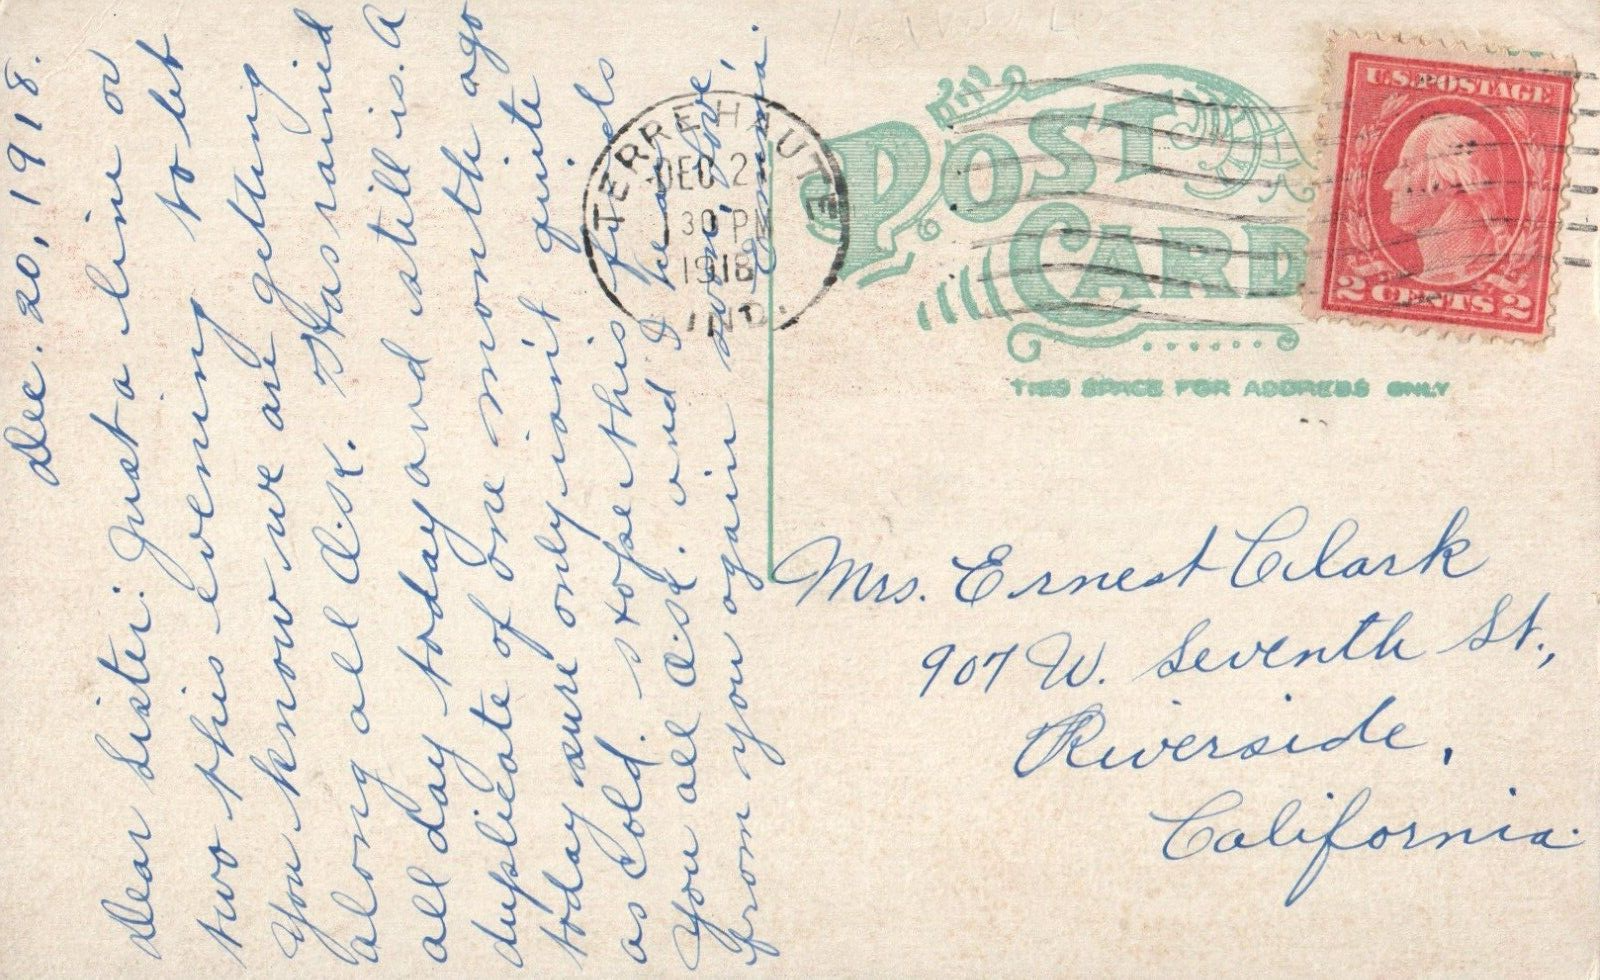 Dec. 20, 1918.
Dear Sister: Just a line or
two this evening to let
you know we are getting
along all O.K. Has rained
all day today and still is. A
duplicate of one month ago
today sure only isnt quite
as cold. s'tofse this finds
you all O.K. and I hear
from you again soon, love,
Emma.
TERRE HAUTE
DEC 2
30 PM
1918
IND.
POST
CARD
THIS SPACE FOR ADDRESS ONLY
U.S. POSTAGE
2 CENTS 2
Mrs. Ernest Clark
907 W. Seventh St.,
Riverside,
California.